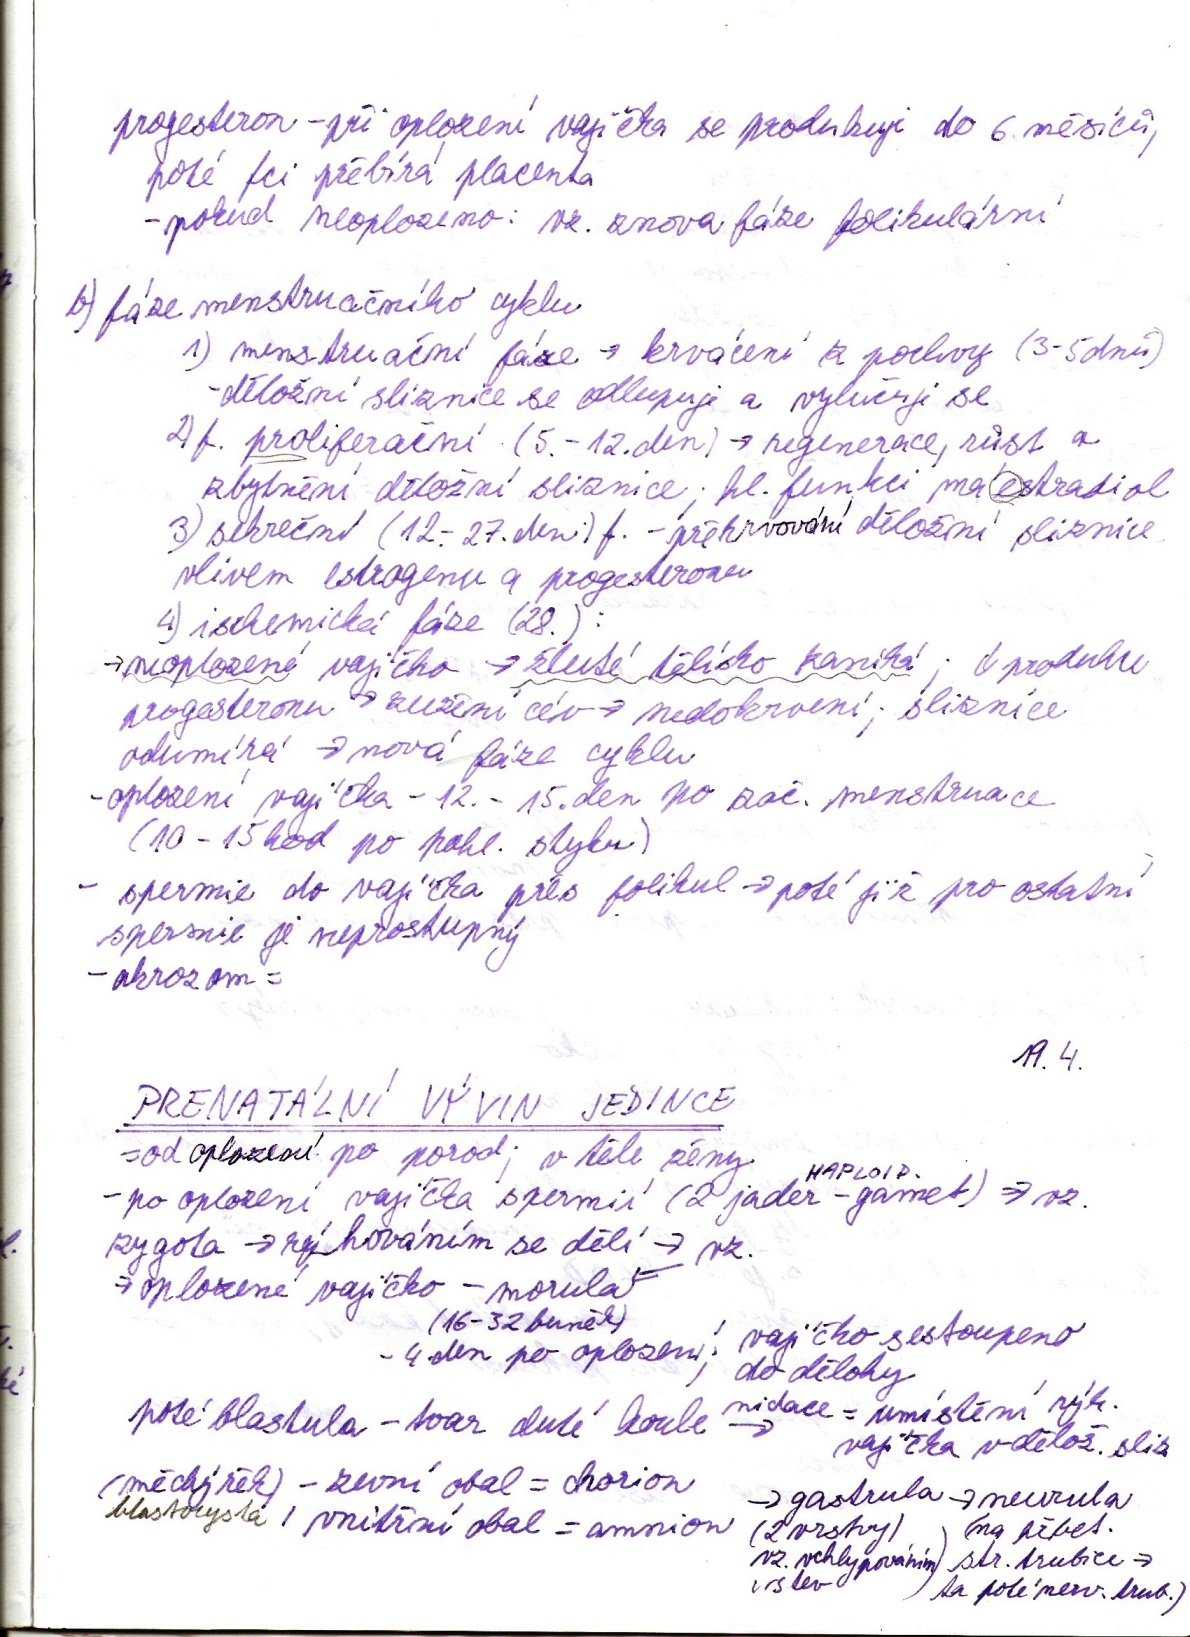 progesteron - při oplození vajíčka se produkuje do 6. měsíců,
poté fci přebírá placenta
- pokud neoplozeno: vz. znova fáze folikulární
b) fáze menstruačního cyklu
1) menstruační fáze → krvácení z pochvy (3-5 dnů)
- děložní sliznice se odlupuje a vylučuje se
2) f. proliferační (5. - 12. den) → regenerace, růst a
zbytnění děložní sliznice; hl. funkci má estradiol
3) sekreční (12. - 27. den) f. - překrvování děložní sliznice
vlivem estrogenu a progesteronu
4) ischemická fáze (28.):
→ neoplozené vajíčko → žluté tělísko zaniká; ↓ produkce
progesteronu → zúžení cév → nedokrvení; sliznice
odumírá → nová fáze cyklu
- oplození vajíčka - 12. - 15. den po zač. menstruace
(10 - 15 hod po pohl. styku)
- spermie do vajíčka přes folikul → poté již pro ostatní
spermie je neprostupný
- akrozom =
19. 4.
PRENATÁLNÍ VÝVIN JEDINCE
= od oplození po porod; v těle ženy
HAPLOID.
- po oplození vajíčka spermií (2 jader - gamet) ⇒ vz.
zygota → rýhováním se dělí → vz.
→ oplozené vajíčko - morula
(16-32 buněk)
- 4. den po oplození; vajíčko sestoupeno
do dělohy
poté blastula - tvar duté koule → nidace = umístění rýh.
vajíčka v dělož. sliz
(měchýřek) - zevní obal = chorion
blastocysta / vnitřní obal = amnion
→ gastrula → neurula
(2 vrstvy) (na hřbet.
vz. vchlypováním str. trubice →
vrstev) ta poté nerv. trub.)